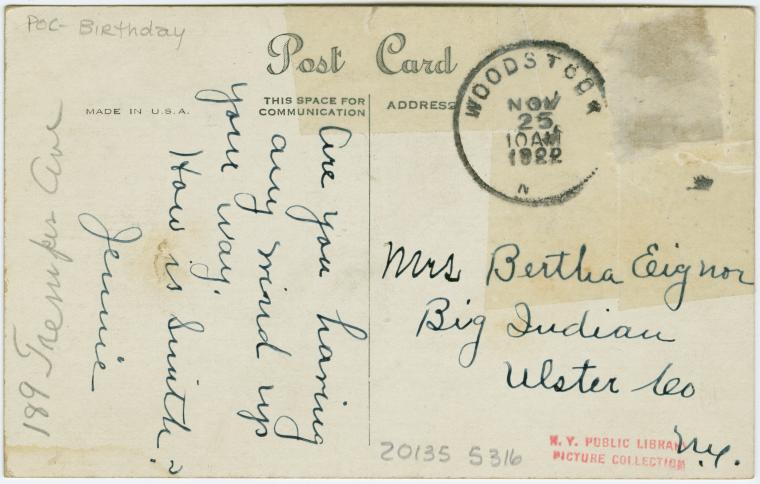 POC- Birthday
Post Card
MADE IN U.S.A.
THIS SPACE FOR
COMMUNICATION
ADDRESS
WOODSTOCK
NOV
25
10 AM
1922
N
Are you having
any wind up
your way.
How is Smith?
Jennie
189 Tremper Ave
Mrs Bertha Eignor
Big Indian
Ulster Co
N.Y.
20135 5316
N. Y. PUBLIC LIBRARY
PICTURE COLLECTION